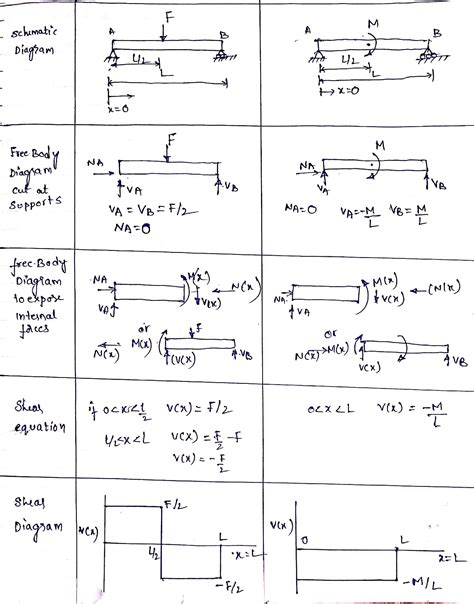 Schematic
Diagram
F
A
B
L/2
L
x=0
M
A
B
L/2
L
x=0
Free Body
Diagram
cut at
supports
F
NA
VA
VB
VA = VB = F/2
NA=0
M
NA
VA
VB
NA=0 VA=-M/L VB=M/L
free-Body
Diagram
to expose
internal
NA
VA
M(x)
V(x)
N(x)
or
F
N(x)
M(x)
(V(x)
VB
NA
VA
M(x)
V(x)
(N(x)
or
N(x) M(x)
V(x)
VB
Shear
equation
if 0<x<L/2 V(x) = F/2
L/2<x<L V(x) = F/2 -F
V(x) = -F/2
0<x<L V(x) = -M/L
Shear
Diagram
V(x)
F/2
L/2
L
x=L
-F/2
V(x)
0
L
x=L
-M/L